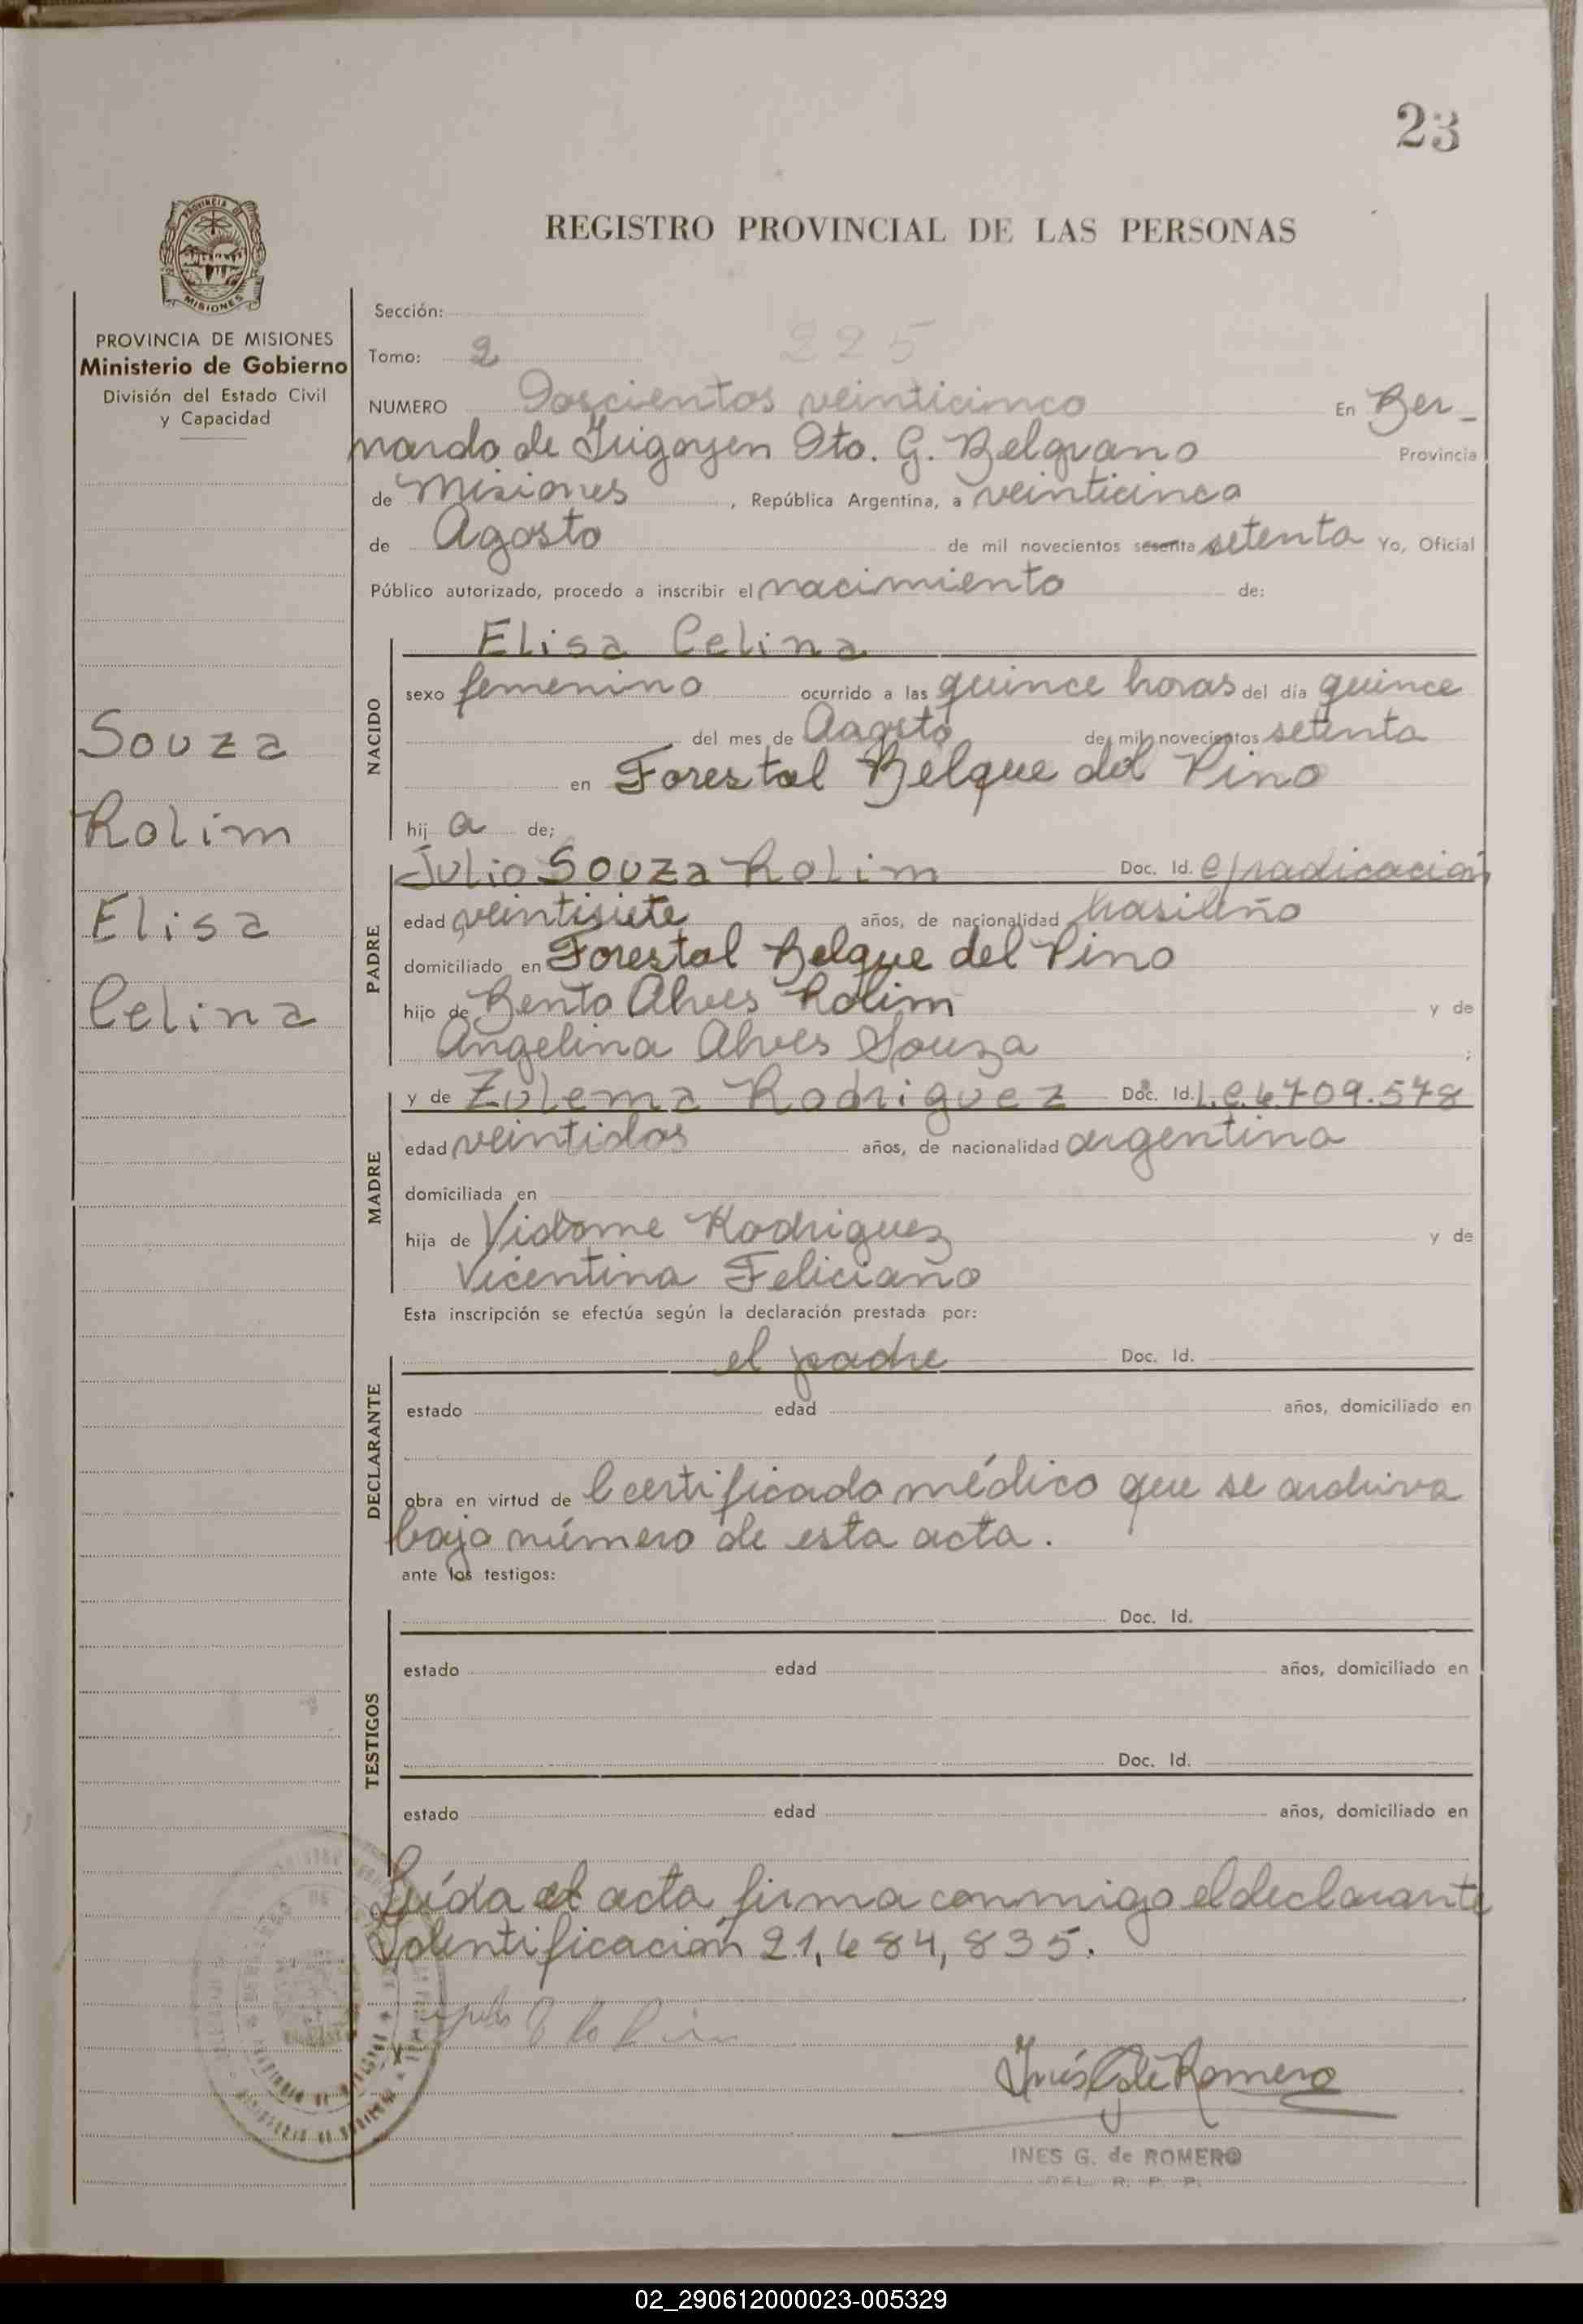 23
REGISTRO PROVINCIAL DE LAS PERSONAS
PROVINCIA DE
MISIONES
PROVINCIA DE MISIONES
Ministerio de Gobierno
División del Estado Civil
y Capacidad
Souza
Rolim
Elisa
Celina
Sección:
225
Tomo: 2
NUMERO Doscientos veinticinco En Ber-
nardo de Irigoyen Dto. G. Belgrano Provincia
de Misiones, República Argentina, a veinticinco
de Agosto de mil novecientos sesenta setenta Yo, Oficial
Público autorizado, procedo a inscribir el nacimiento de:
NACIDO
Elisa Celina
sexo femenino ocurrido a las quince horas del día quince
del mes de Agosto de mil novecientos setenta
en Forestal Belque del Pino
hij a de;
PADRE
Julio Souza Rolim Doc. Id. c/radicación
edad veintisiete años, de nacionalidad brasileño
domiciliado en Forestal Belque del Pino
hijo de Bento Alves Rolim y de
Angelina Alves Souza ;
MADRE
y de Zulema Rodriguez Doc. Id. L.C. 6.709.578
edad veintidos años, de nacionalidad argentina
domiciliada en
hija de Vidome Rodriguez y de
Vicentina Feliciano
Esta inscripción se efectúa según la declaración prestada por:
DECLARANTE
el padre Doc. Id.
estado edad años, domiciliado en
obra en virtud de l certificado médico que se archiva
bajo número de esta acta.
ante los testigos:
TESTIGOS
Doc. Id.
estado edad años, domiciliado en
Doc. Id.
estado edad años, domiciliado en
Leída el acta firma conmigo el declarante
Identificación 21,684,835.
Inés G de Romero
INES G. de ROMERO
DEL. R. P. P.
02_290612000023-005329